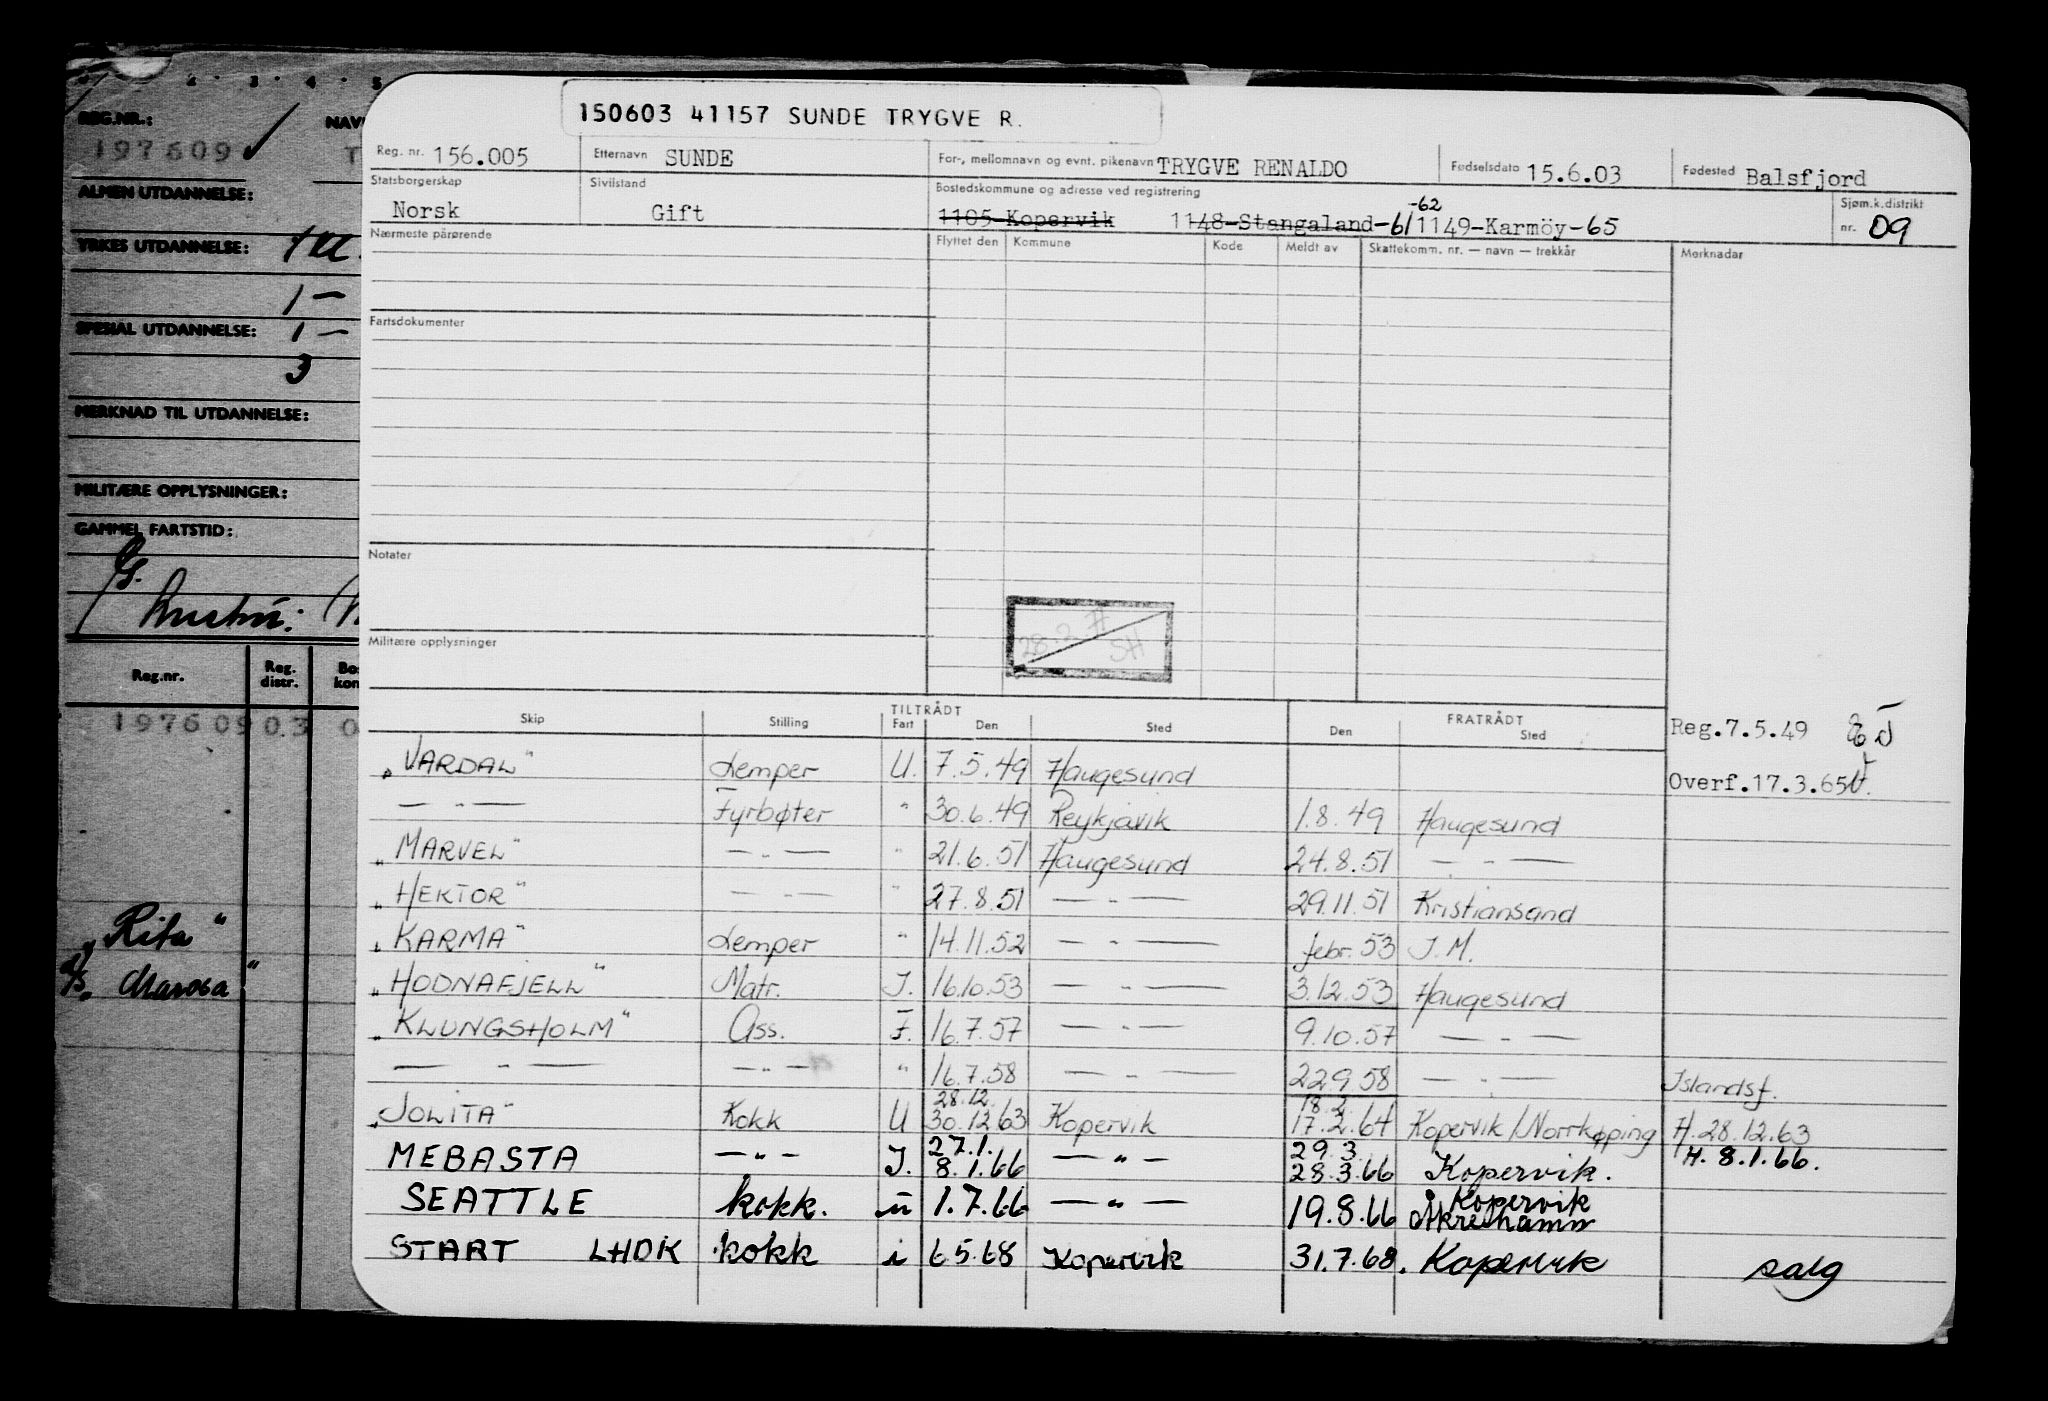 2 · 3 · 4 · 5
REG.NR.: NAV
197609 T
ALMEN UTDANNELSE:
YRKES UTDANNELSE:
1 —
SPESIAL UTDANNELSE: 1 —
3
MERKNAD TIL UTDANNELSE:
MILITÆRE OPPLYSNINGER:
GAMMEL FARTSTID:
Reg.nr. Reg. distr. Bos kon
197609 03 0
„Rita"
150603 41157 SUNDE TRYGVE R.
Reg. nr. 156.005 Etternavn SUNDE For-, mellomnavn og evnt. pikenavn TRYGVE RENALDO Fødselsdato 15.6.03 Fødested Balsfjord
Statsborgerskap Sivilstand Bostedskommune og adresse ved registrering Sjøm.k.distrikt
Norsk Gift 1105-Kopervik 1148-Stangaland-61 -62 1149-Karmöy-65 nr. 09
Nærmeste pårørende Flyttet den Kommune Kode Meldt av Skattekomm. nr. — navn — trekkår Merknadar
Fartsdokumenter
Notater
28.2.71
SH
Militære opplysninger
TILTRÅDT FRATRÅDT
Skip Stilling Fart Den Sted Den Sted
Reg.7.5.49
„VARDAL" Lemper U. 7.5.49 Haugesund
Overf.17.3.65
— „ — Fyrbøter " 30.6.49 Reykjavik 1.8.49 Haugesund
„MARVEL" — „ — " 21.6.51 Haugesund 24.8.51 — „ —
„HEKTOR" — „ — " 27.8.51 — „ — 29.11.51 Kristiansand
„KARMA" Lemper " 14.11.52 — „ — febr. 53 I.M.
„HODNAFJELL" Matr. I. 16.10.53 — „ — 3.12.53 Haugesund
„KLUNGSHOLM" Ass. F. 16.7.57 — „ — 9.10.57 — „ —
— „ — — „ — " 16.7.58 — „ — 22.9.58 — „ — Islandsf.
28.12. 18.2.
„JOLITA" Kokk U 30.12.63 Kopervik 17.2.64 Kopervik/Norrkøping H.28.12.63
27.1. 29.3.
MEBASTA — „ — I. 8.1.66 — „ — 28.3.66 Kopervik. H. 8.1.66.
Kopervik
SEATTLE kokk. u 1.7.66 — „ — 19.8.66 Åkrehamn
START LHDK kokk i 6.5.68 Kopervik 31.7.68. Kopervik salg